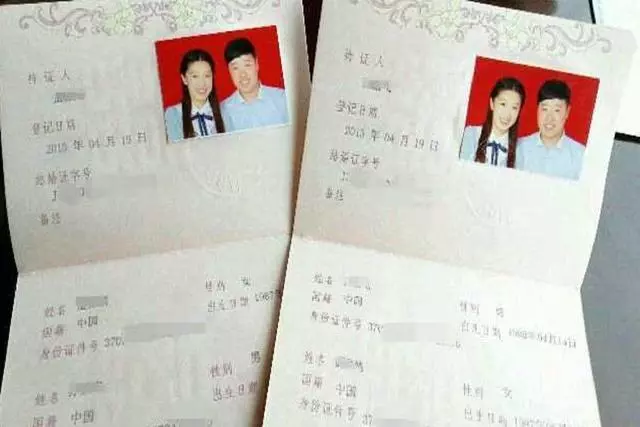 持证人
登记日期
2015 年 04 月 15 日
结婚证字号
J
备注
姓名
性别 女
国籍 中国
出生日期 1987
身份证件号 370
姓名
性别 男
国籍 中国
出生日期
身份证件号
持证人
登记日期
2015 年 04 月 19 日
结婚证字号
J
备注
姓名
性别 男
国籍 中国
出生日期 1988年04月14日
身份证件号 370
姓名
性别 女
国籍 中国
出生日期 1987年
身份证件号 37